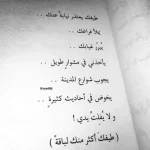 طيفك يعتذر نيابة عنك ..
يملأ فراغك
يبرر غيابك ..
يأخذني في مشوار طويل ..
يجوب شوارع المدينة ..
يخوض في أحاديث كثيرة ..
و لا يُفلت يدي !
( طيفك أكثر منك لباقة )